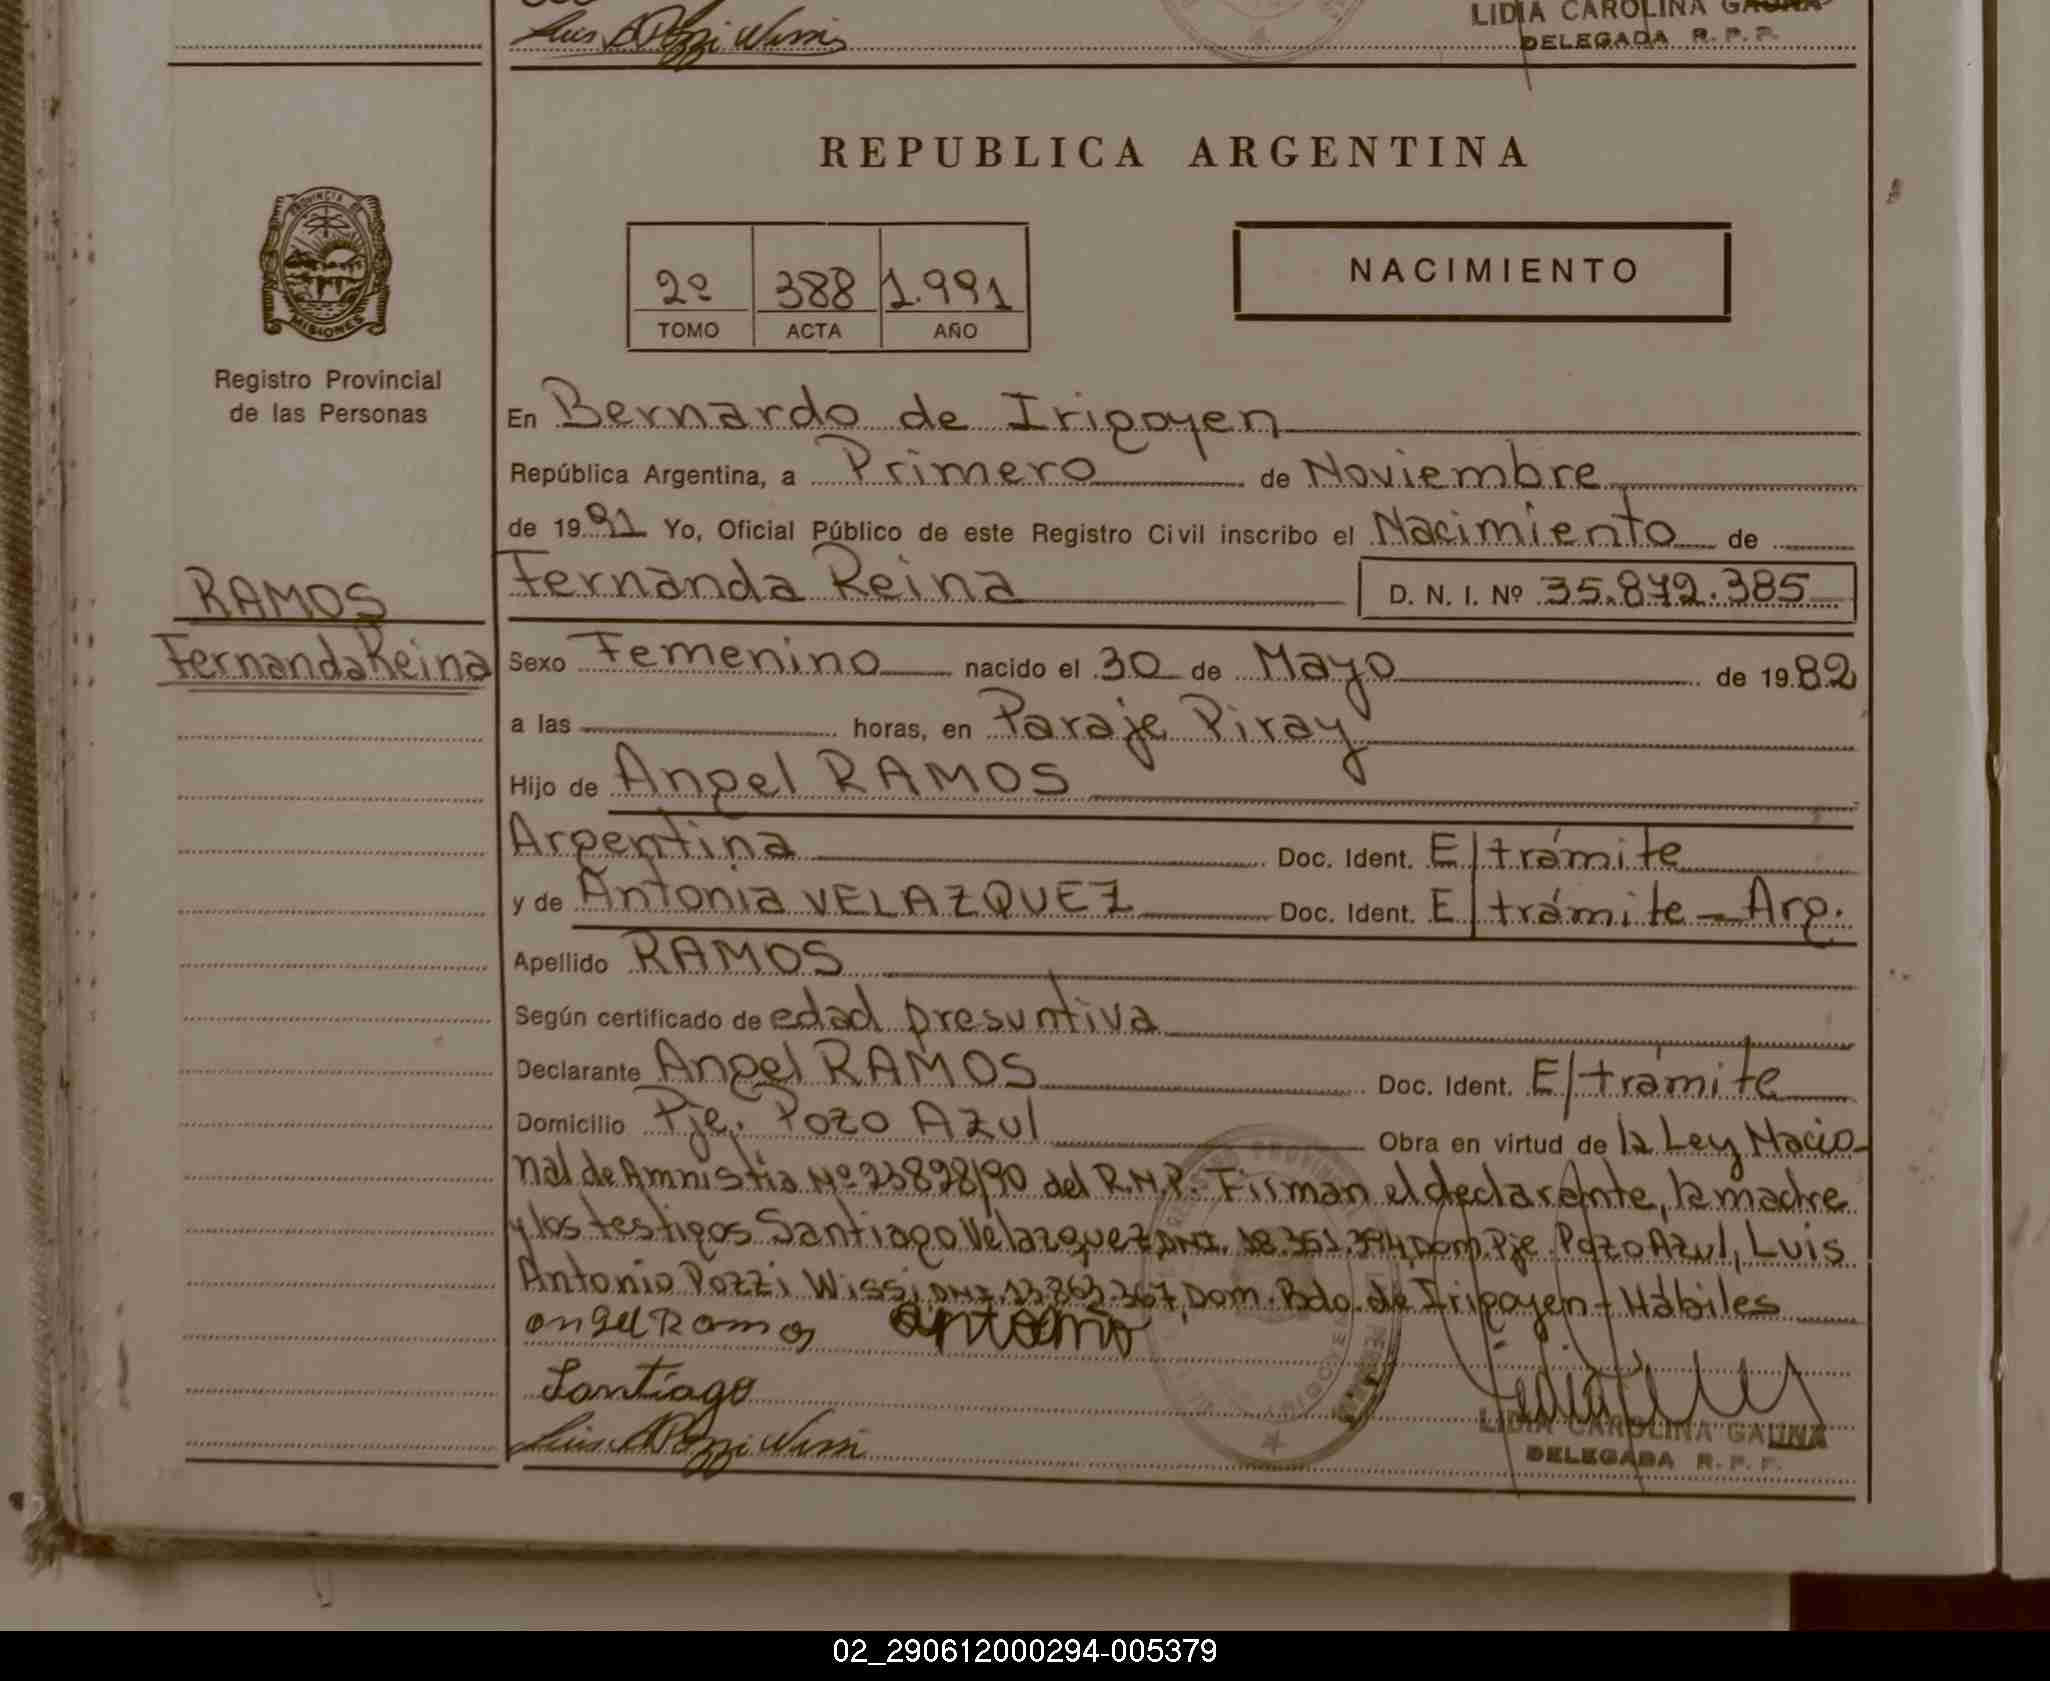 Luis A Pozzi Wissi
LIDIA CAROLINA GAUNA
DELEGADA R. P. P.
REPUBLICA ARGENTINA
PROVINCIA DE
MISIONES
2º 388 1.991
TOMO ACTA AÑO
NACIMIENTO
Registro Provincial
de las Personas
En Bernardo de Irigoyen
República Argentina, a Primero de Noviembre
de 1991 Yo, Oficial Público de este Registro Civil inscribo el Nacimiento de
RAMOS
Fernanda Reina
Fernanda Reina D. N. I. Nº 35.872.385
Sexo Femenino nacido el 30 de Mayo de 1982
a las horas, en Paraje Piray
Hijo de Angel RAMOS
Argentina Doc. Ident. E/trámite
y de Antonia VELAZQUEZ Doc. Ident. E/trámite - Arg.
Apellido RAMOS
Según certificado de edad presuntiva
Declarante Angel RAMOS Doc. Ident. E/trámite
Domicilio Pje. Pozo Azul Obra en virtud de la Ley Nacio-
nal de Amnistia Nº 23828/90 del R.N.P. Firman el declarante, la madre
y los testigos Santiago Velazquez DNI. 18.351.394, Dom. Pje. Pozo Azul, Luis
Antonio Pozzi Wissi DNI. 13.863.367, Dom. Bdo. de Irigoyen - Hábiles
angel Ramos
Santiago
Luis A Pozzi Wissi
LIDIA CAROLINA GAUNA
DELEGADA R. P. P.
02_290612000294-005379